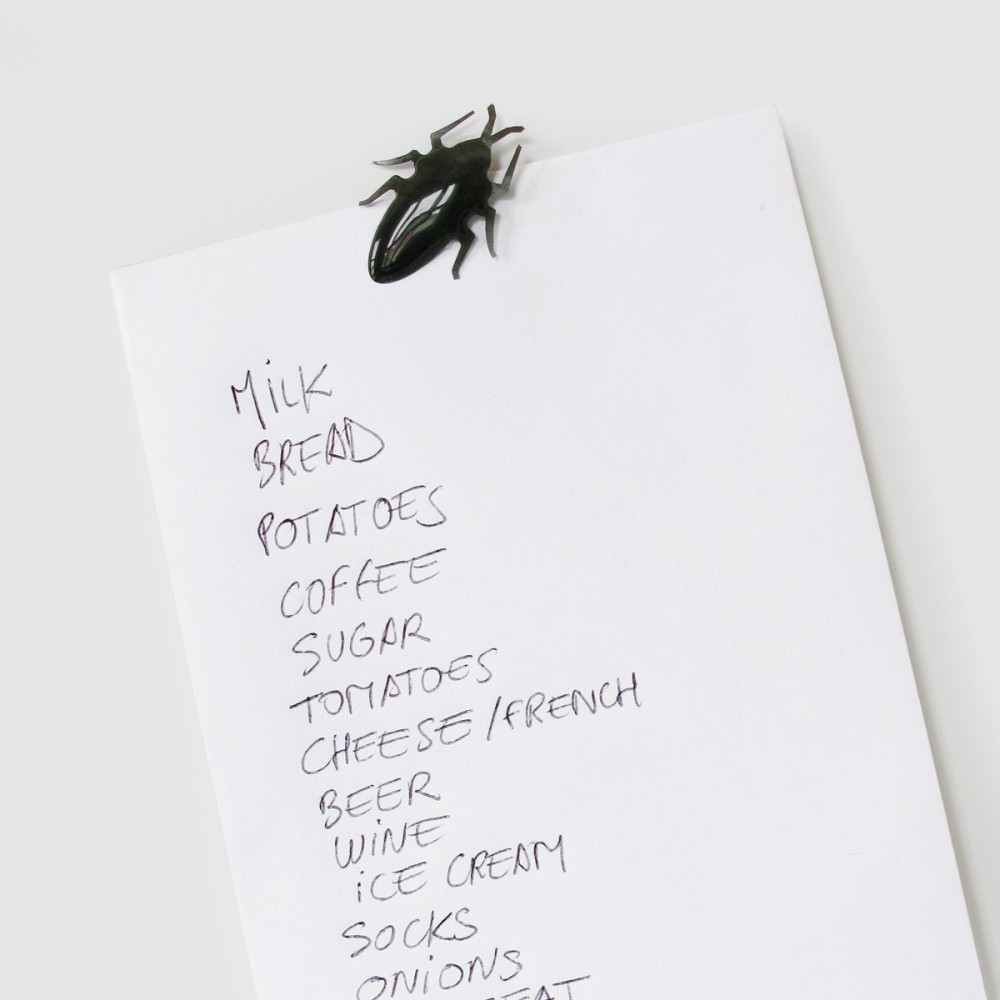 MiLK
BREAD
POTATOES
COFFEE
SUGAR
TOMATOES
CHEESE/FRENCH
BEER
WiNE
iCE CREAM
SOCKS
ONiONS